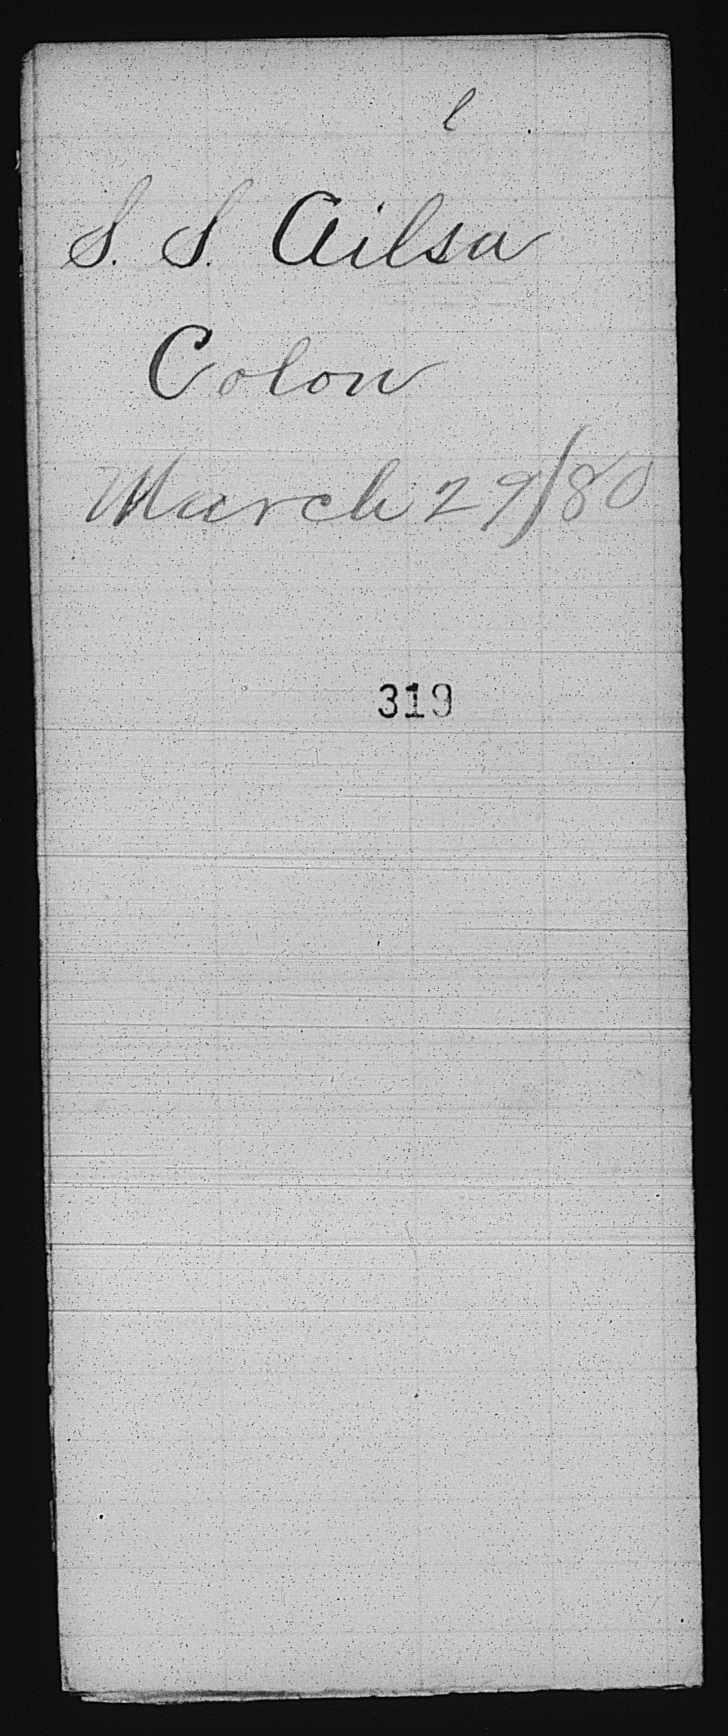 l
S. S. Ailsa
Colon
March 29/80
319